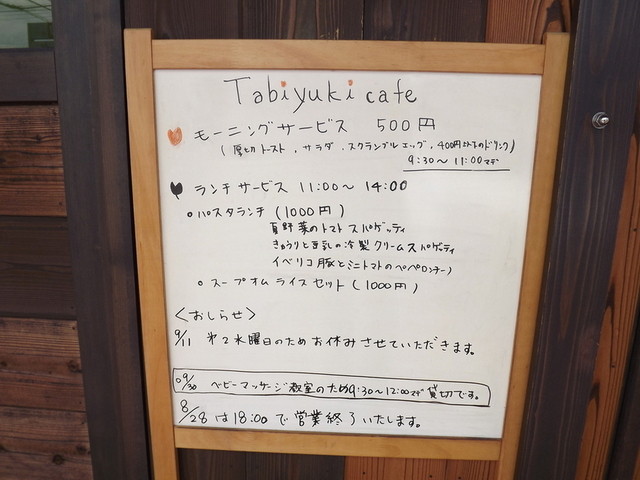 Tabiyuki cafe
モーニングサービス 500円
(厚切トースト、サラダ、スクランブルエッグ、400円以下のドリンク)
9:30〜11:00マデ
ランチサービス 11:00〜14:00
○パスタランチ (1000円)
夏野菜のトマトスパゲッティ
きゅうりと豆乳の冷製クリームスパゲティ
イベリコ豚とミニトマトのペペロンチーノ
○スープオムライスセット (1000円)
<おしらせ>
9/11 第2水曜日のためお休みさせていただきます。
○9/30 ベビーマッサージ教室のため9:30〜12:00マデ貸切です。
8/28は18:00で営業終了いたします。